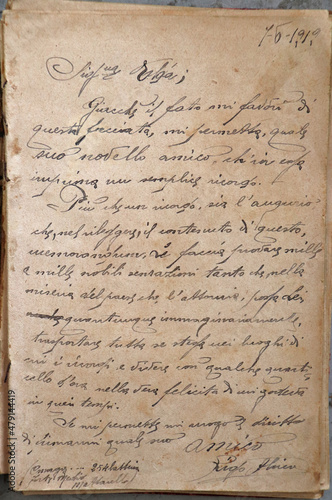 7-6-1919
Giacchè il fato mi favorì di
questa facciata, mi permetta, quale
suo novello amico, ch'io in essa
imprima un semplice ricordo.
Più che un ricordo, sia l'augurio
che, nel rileggere, il contenuto di questo,
memorandum, Le faccia provare mille
e mille nobili sensazioni tanto che, nella
miseria del paese che l'attornia, possa Lei
quantunque immaginariamente,
trasportare tutta se stessa nei luoghi di
cui i ricordi e vivere con qualche quarti
cello d'ora nella vera felicità di cui godeva
in quei tempi.
Se mi permette mi arrogo il diritto
di chiamarmi quale suo
amico
Adobe Stock | #479144419